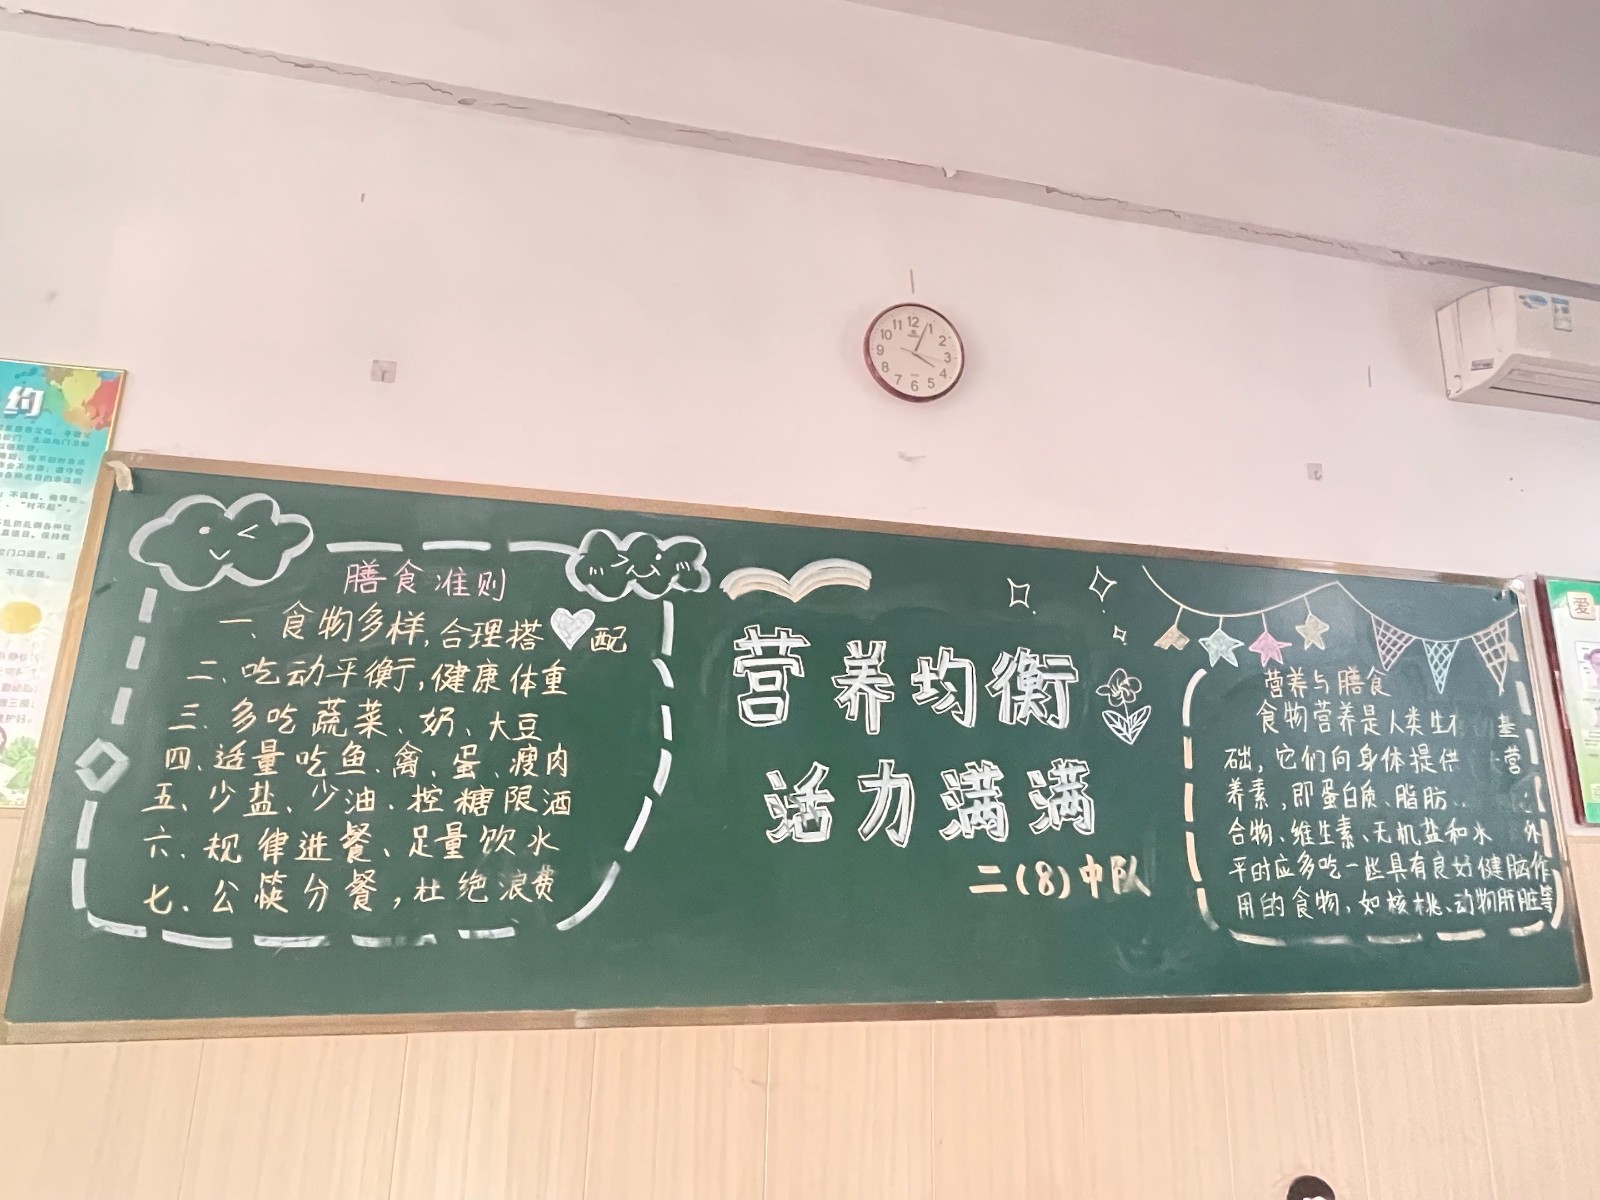 约
膳食准则
一、食物多样,合理搭配
二、吃动平衡,健康体重
三、多吃蔬菜、奶、大豆
四、适量吃鱼、禽、蛋、瘦肉
五、少盐、少油、控糖限酒
六、规律进餐、足量饮水
七、公筷分餐,杜绝浪费
营养均衡
活力满满
二(8)中队
营养与膳食
食物营养是人类生 基
础,它们向身体提供 营
养素,即蛋白质、脂肪、
合物、维生素、无机盐和水 外
平时应多吃一些具有良好健脑作
用的食物,如核桃、动物肝脏等
爱
12 1 2 3 4 5 6 7 8 9 10 11